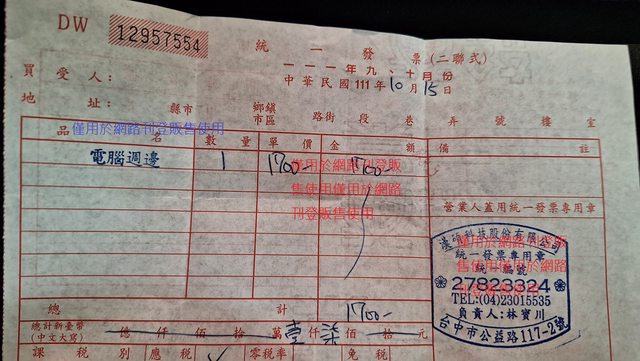 DW 12957554
統一發票(二聯式)
一一一年九、十月份
中華民國111年10月15日
買受人:
地址: 縣市 鄉鎮市區 路街 段 巷 弄 號 樓 室
品名 數量 單價 金額 備註
僅用於網路刊登販售使用
電腦週邊 1 1700- 1700-
僅用於網路刊登販
售使用僅用於網路
刊登販售使用
營業人蓋用統一發票專用章
科技股份有限公司
統一發票專用章
僅用於網路刊登販
統一編號
售使用僅用於網路
27823324
TEL:(04)23015535
負責人:林寶川
台中市公益路117-2號
總計 1700-
總計新臺幣
(中文大寫)
億 仟 佰 拾 萬 壹仟 柒佰 拾 元
課稅別 應稅 ✓ 零稅率 免稅